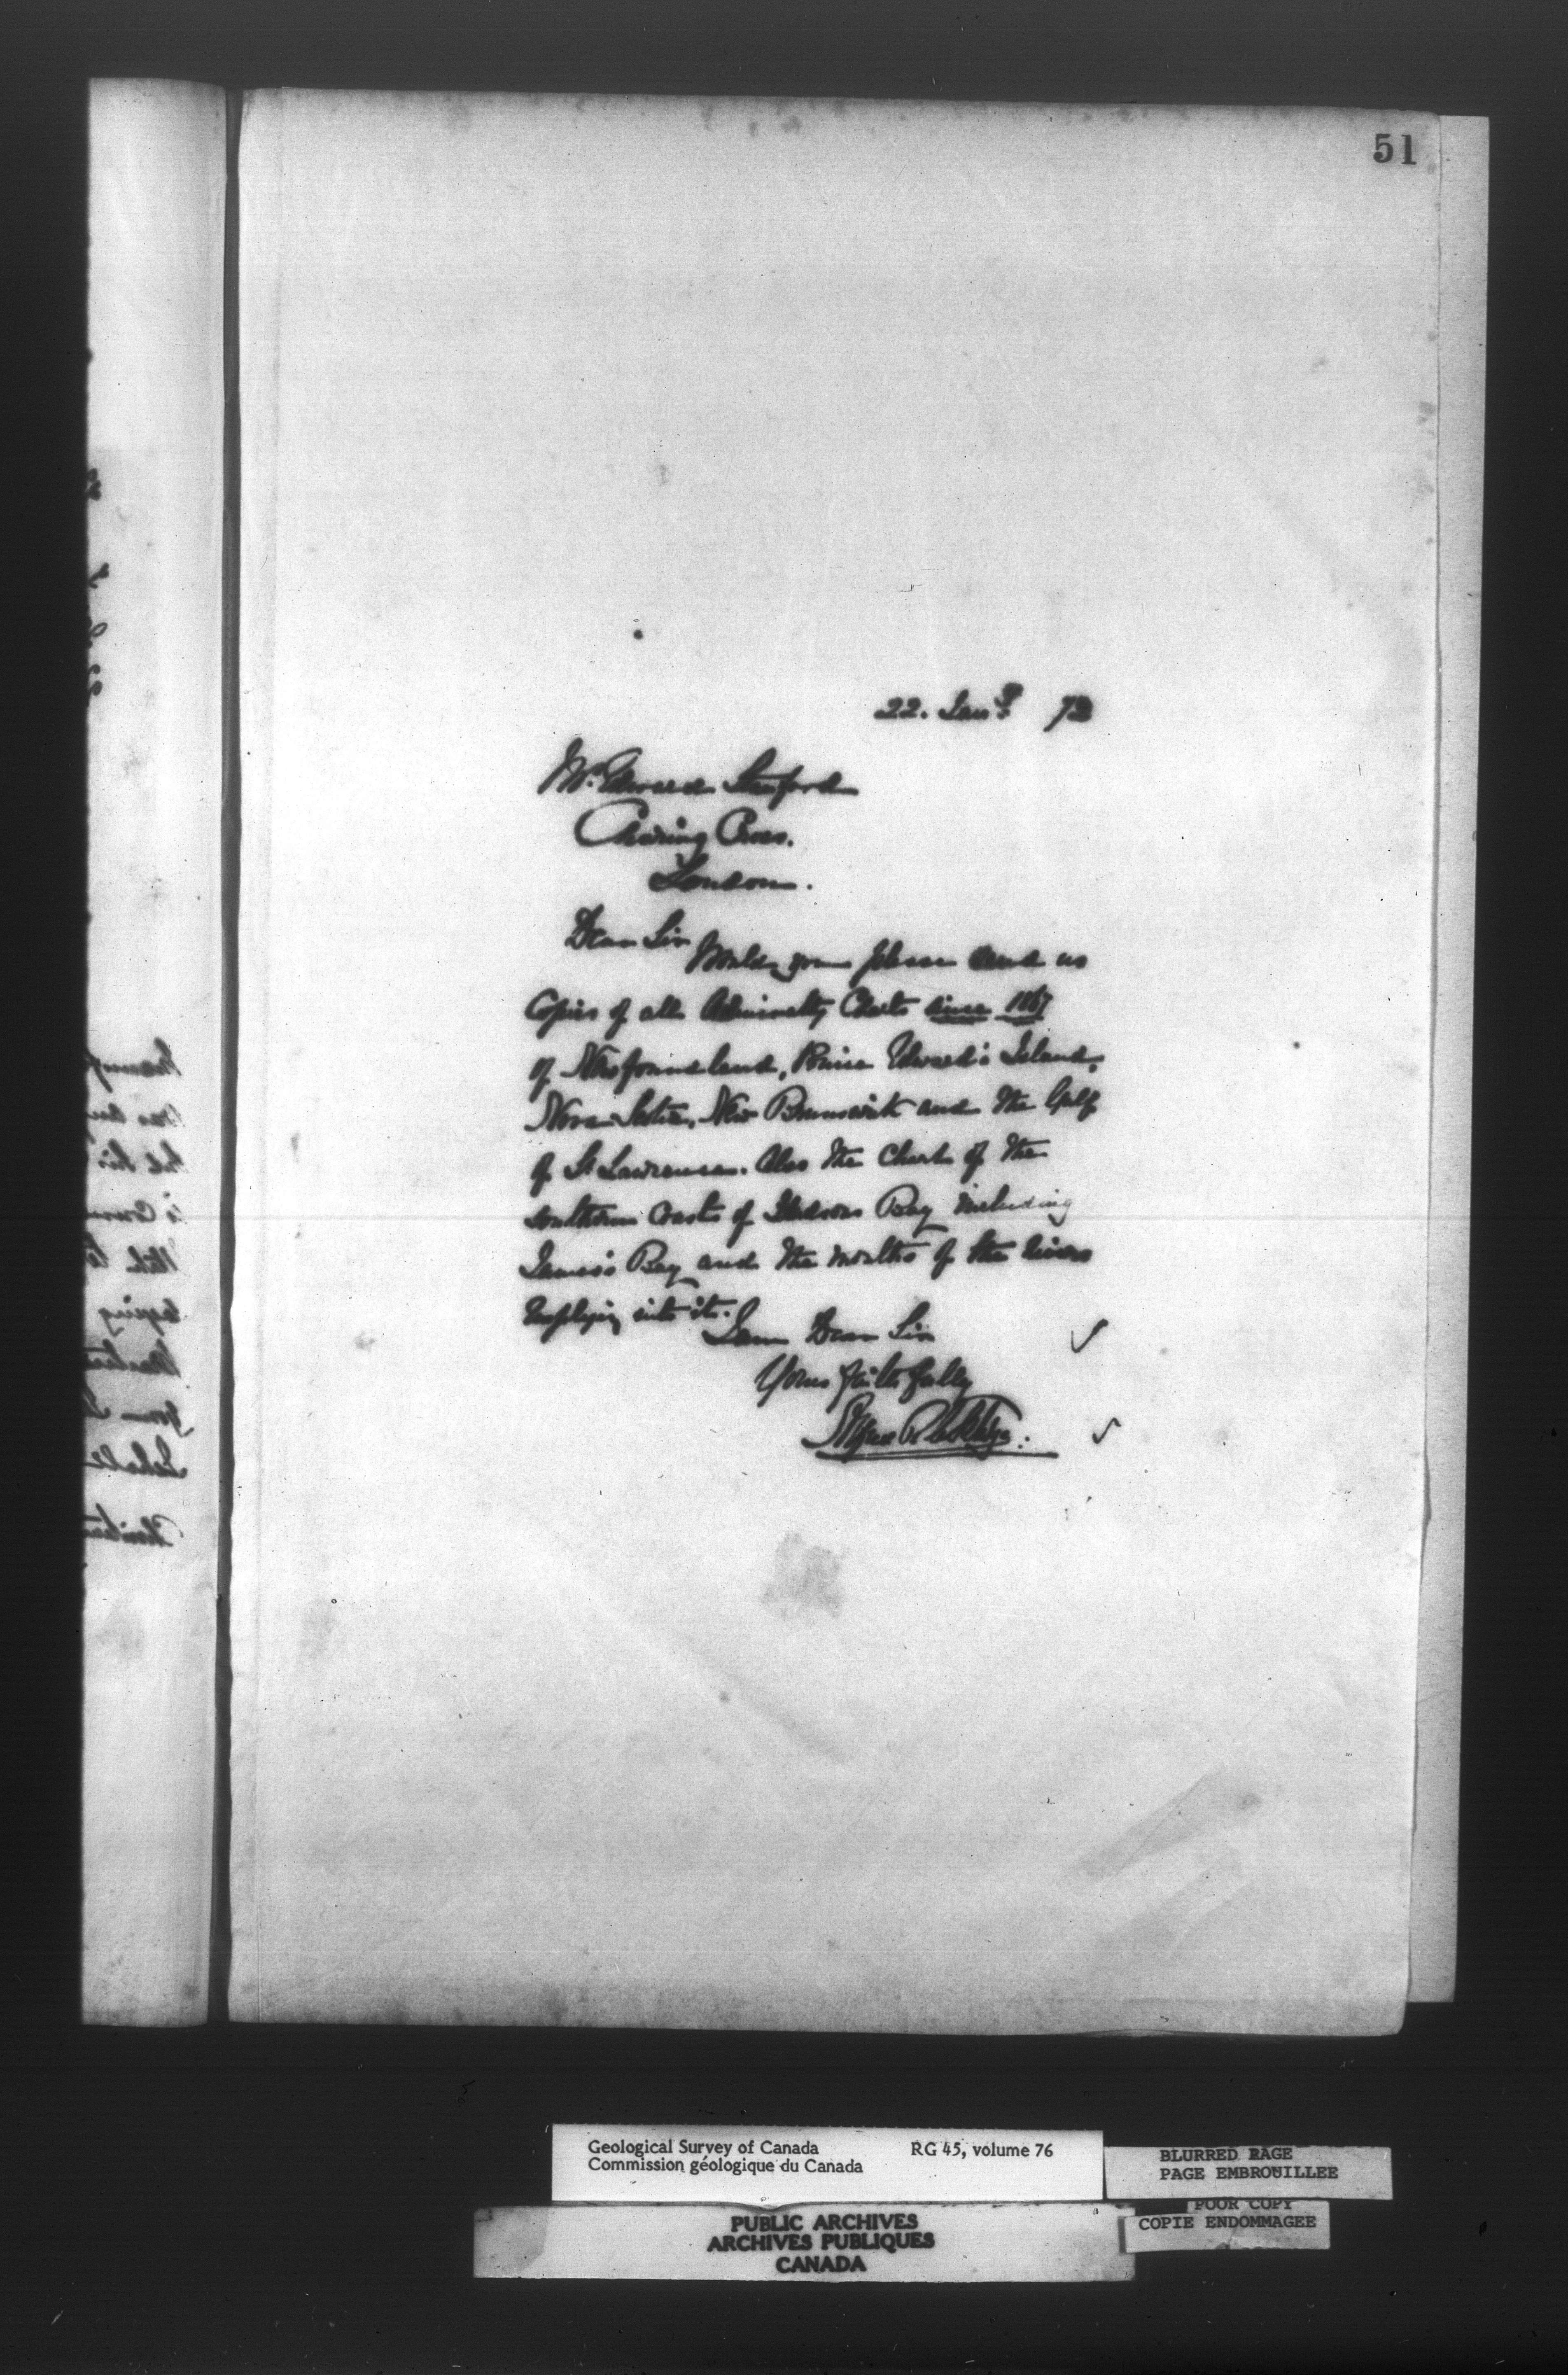 51
22. Jany 72
Mr. Edward Stanford
Charing Cross.
London.
Dear Sir
Would you please send us
Copies of all Admiralty Charts since 1867
of Newfoundland, Prince Edward's Island,
Nova Scotia, New Brunswick and the Gulf
of St Lawrence. Also the Chart of the
southern Coasts of Hudsons Bay including
James's Bay and the mouths of the rivers
emptying into it.
I am Dear Sir
Yours faithfully
Geological Survey of Canada RG 45, volume 76
Commission géologique du Canada
BLURRED PAGE
PAGE EMBROUILLEE
POOR COPY
COPIE ENDOMMAGEE
PUBLIC ARCHIVES
ARCHIVES PUBLIQUES
CANADA